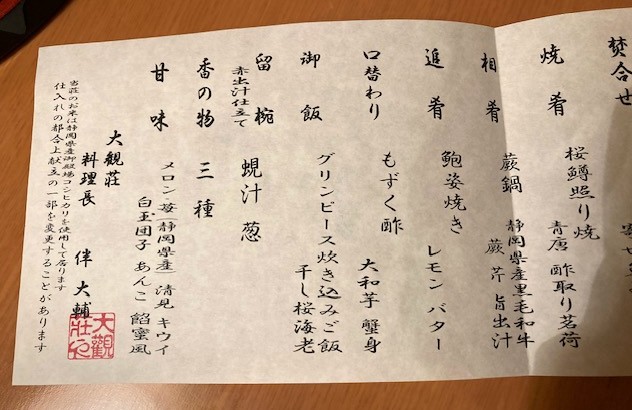 焚合せ
焼肴
桜鱒照り焼
青唐 酢取り茗荷
相肴
蕨鍋 静岡県産黒毛和牛
蕨 芹 旨出汁
追肴
鮑姿焼き レモン バター
口替わり
もずく酢 大和芋 蟹身
御飯
グリンピース炊き込みご飯
干し桜海老
留椀
赤出汁仕立て
蜆汁 葱
香の物 三種
甘味
メロン 苺 静岡県産 清見 キウイ
白玉団子 あんこ 餡蜜風
大観荘
料理長 伴 大輔
当荘のお米は静岡県産御殿場コシヒカリを使用して居ります
仕入れの都合上献立の一部を変更することがあります